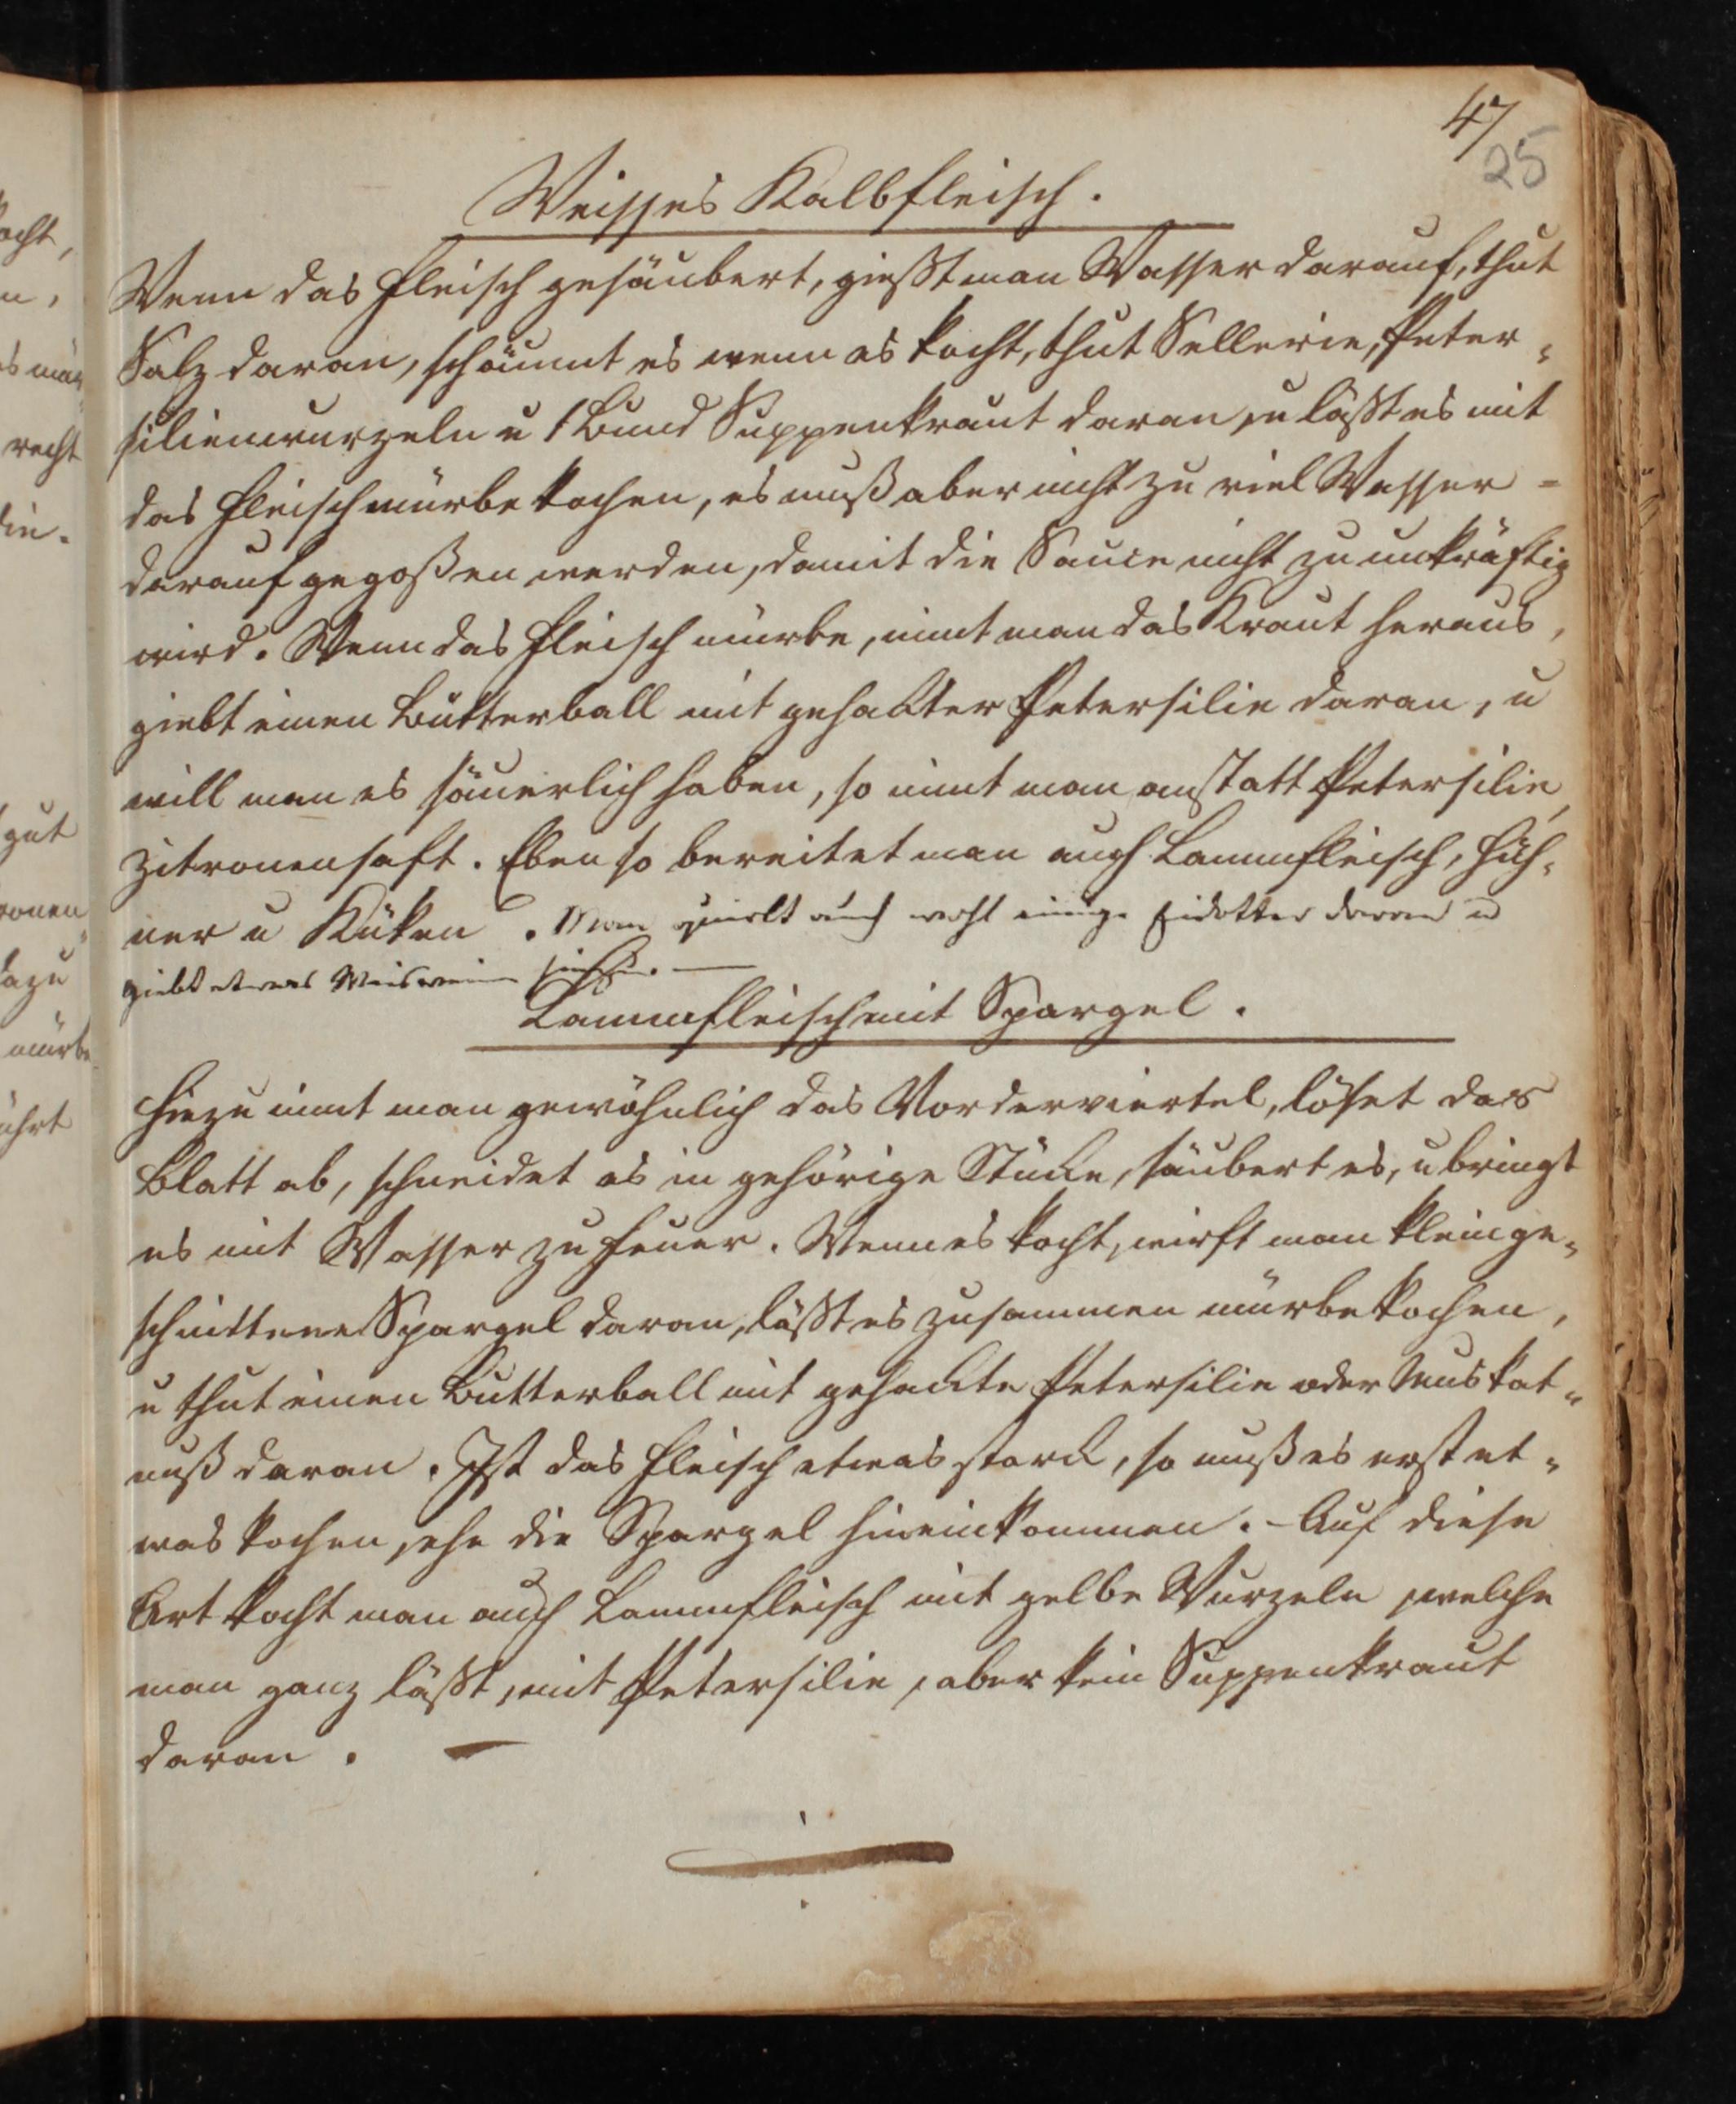 47
25
Weisses Kalbfleisch.
Wenn das Fleisch gesäubert, gießt man Wasser darauf, thut
Salz daran, schäumt es wenn es kocht, thut Sellerie, Peter-
silienwurzeln u 1 Bund Suppenkraut daran, u läßt es mit
das Fleisch mürbe kochen, es muß aber nicht zu viel Wasser =
darauf gegoßen werden, damit die Sauce nicht zu unkräftig
wird. Wenn das Fleisch mürbe, nimt man das Kraut heraus,
giebt einen Butterball mit gehackter Petersilie daran, u
will man es säuerlich haben, so nimt man anstatt Petersilie,
Zitronensaft. Eben so bereitet man auch Lammfleisch, Hüh-
ner u Küken. Man quirlt auch wohl einige Eidotter daran u
giebt etwas Weiswein hinein. —
Lammfleisch mit Spargel.
Hiezu nimt man gewöhnlich das Vorderviertel, löset das
Blatt ab, schneidet es in gehörige Stücke, säubert es, u bringt
es mit Wasser zu Feuer. Wenn es kocht, wirft man kleinge-
schnittene Spargel daran, läßt es zusammen mürbe kochen,
u thut einen Butterball mit gehackte Petersilie oder Muskat-
nuß daran. Ist das Fleisch etwas starck, so muß es erst et-
was kochen, ehe die Spargel hineinkommen. - Auf diese
Art kocht man auch Lammfleisch mit gelbe Wurzeln, welche
man ganz läßt, mit Petersilie, aber kein Suppenkraut
daran. —
ocht,
n,
es man
recht
die.
gut
ronen
dazu
mürbe
ührt